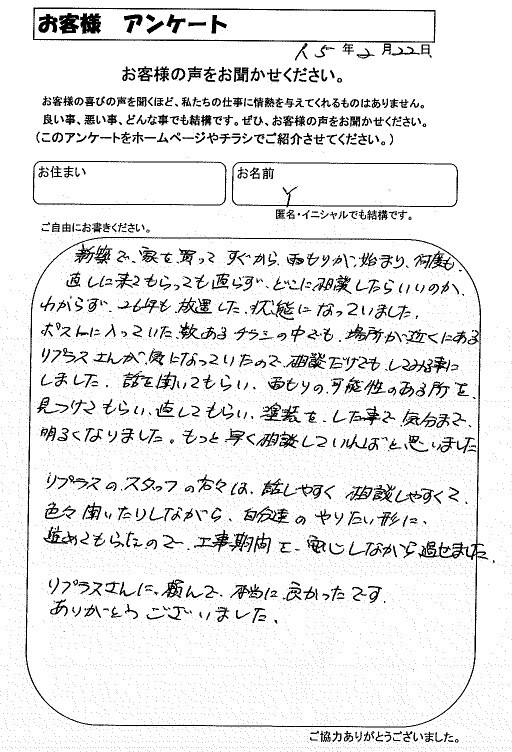 お客様 アンケート
R5年2月22日
お客様の声をお聞かせください。
お客様の喜びの声を聞くほど、私たちの仕事に情熱を与えてくれるものはありません。
良い事、悪い事、どんな事でも結構です。ぜひ、お客様の声をお聞かせください。
（このアンケートをホームページやチラシでご紹介させてください。）
お住まい
お名前
Y
匿名・イニシャルでも結構です。
ご自由にお書きください。
新築で、家を買って すぐから、雨もりが、始まり、何度も、
直しに来てもらっても直らず、どこに相談したらいいのか、
わからず、26年も、放置した、状態になっていました。
ポストに入っていた、数あるチラシの中でも、場所が近くにある
リプラスさんが、気になっていたので、相談だけでも、してみる事に
しました、話を聞いてもらい、雨もりの、可能性のある所を、
見つけてもらい、直してもらい、塗装を、した事で、気分まで、
明るくなりました。もっと早く相談していればと、思いました
リプラスの、スタッフの方々は、話しやすく 相談しやすくて、
色々聞いたりしながら、自分達の やりたい形に、
進めてもらえたので、工事期間を、安心しながら過せました、
リプラスさんに、頼んで、本当に、良かったです、
ありがとう ございました、
ご協力ありがとうございました。